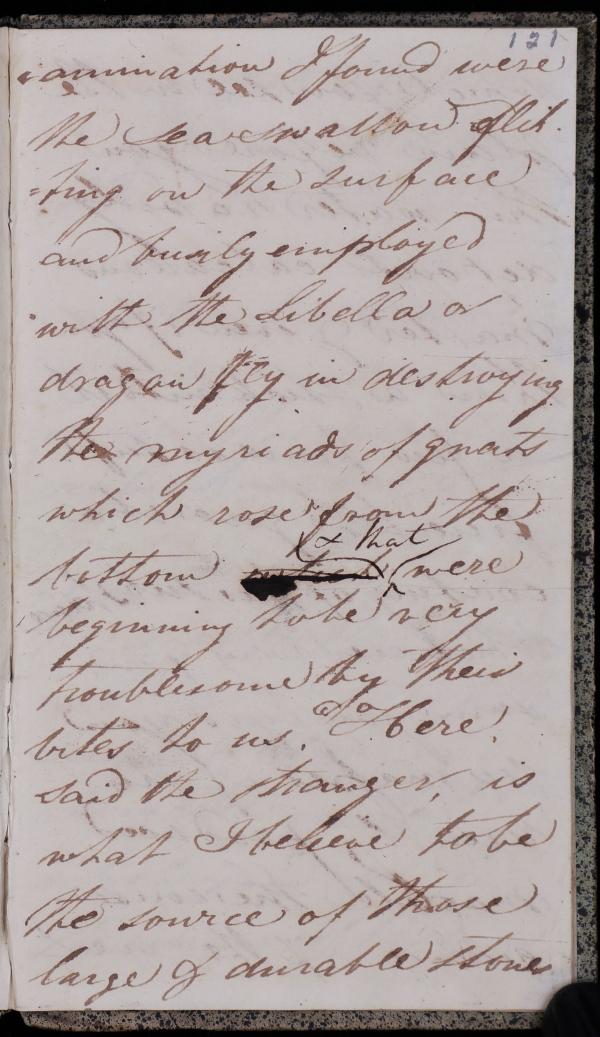 121
amination I found were
the sea swallow flit-
=ting on the surface
and busily employed
with the Libella or
dragon fly in destroying
the myriads of gnats
which rose from the
& that
bottom which were
beginning to be very
troublesome by their
bites to us. "Here,
said the stranger, is
what I believe to be
the source of those
large & durable stones